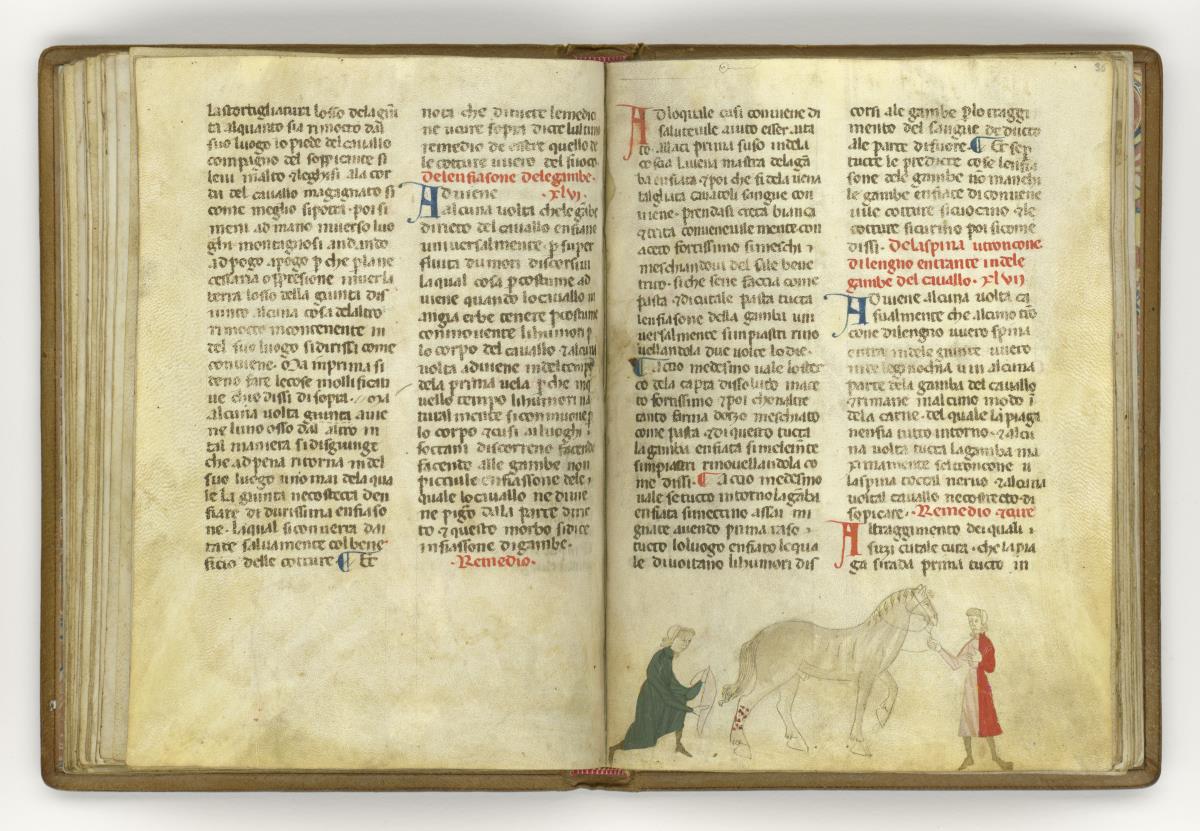 la stortigliatura losso dela giū
ta alquanto sia rimosso dal
suo luogo lo piede del cavallo
compagno del soppicante si
levi in alto & leghisi ala cor
da del cavallo magagnato si
come meglio si potra · poi si
meni ad mano inverso luo
ghi montagnosi andando
ad pogo apogo p che p la ne
cessaria oppressione inver la
terra losso della giunta dis
iunto alcuna cosa dal altro
rimosso incontenente in
del suo luogo si dirissi come
conviene · Ma in prima si
deno fare le cose mollificati
ve chio dissi di sopra ·
alcuna volta giunta avie
ne luno osso dal altro in
tal maniera si disgiunge
che ad pena ritorna in del
suo luogo uno mai dela qua
le la giunta necostecta den
fiare di durissima enfiaso
ne · la qual si converta dai
tare salvamente col bene
ficio delle cotture ¶ Et
nota che divete lo remedio
ne vere sopra dicte lultimo
remedio de essere quello de
le cotture uvero del fuoco
de lenfiasone dele gambe ·
Adviene · xlvi ·
alcuna volta che le gābe
dirieto del cavallo enfiano
universalmente · p super
fluita dumori discorsivi
la qual cosa p costume ad
viene quando lo cavallo in
mangia erbe tenere p costume
conmovente li humori p
lo corpo del cavallo & alcuna
volta adviene indel tempo
dela prima vela p che inq
uello tempo li humori na
turalmente si conmuove p
lo corpo & cusi ai luoghi
soctani discorreno facendo
facendo alle gambe non
piciule enfiassone dele
quale lo cavallo ne dive
ne pigro dala parte dirie
to & questo morbo si dice
infiassone di gambe ·
· Remedio ·
36
Ad lo quale cusi conviene di
salutevile aiuto esser aita
to · allaci prima suso in dela
coscia la vena mastra dela gā
ba enfiata & poi che si dela vena
tagliata cavatoli sangue con
viene · prendasi creta bianca
& trita convenevilemente con
aceto fortissimo si meschi ·
meschiandovi del sale bene
trito · si che sene faccia come
pasta & di cutale pasta tucta
lenfiasone della gamba uni
versalmente simpiastri rino
vellandola due volte lo die ·
¶ A cuo medesmo vale lo ster
co dela capra dissoluto in ace
to fortissimo & poi che naltre
tanto farina dorzo meschiato
come pasta & di questo tucta
la gamba enfiata similemte
simpiastri rinovellandola co
me dissi · ¶ A cuo medesmo
vale se tucto intorno la gāba
enfiata si mectino assai mi
gnate avendo prima raso
tucto lo luogo enfiato le qua
le divoitano li humori dis
corsi ale gambe p lo traggi
mento del sangue deducto
ale parte di fuore · ¶ Et se p
tucte le predicte cose lenfia
sone dele gambe no manchi
le gambe enfiate di conviene
vile cotture si cuocano & le
cotture si curino poi si come
dissi · Dela spina u troncone
di lengno entrante in dele
gambe del cavallo · xlvii
Adviene alcuna volta ca
sualmente che alcuno trō
cone di lengno uvero spina
entra in dele giunte uvero
in dele ginochia u in alcuna
parte dela gamba del cavallo
& rimane in alcuno modo in
dela carne · del quale la piaga
nenfia tutto intorno · & alcu
na volta tucta la gamba ma
ximamente sel troncone u
la spina toccal nervo & alcuna
volta l cavallo necostrecto di
sopicare · Remedio & cure
Al traggimento dei quali ·
susi cutale cura · che la pia
ga si rada prima tucto in